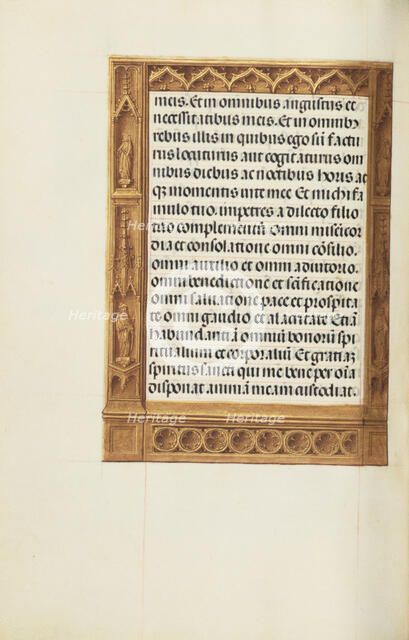 meis. Et in omnibus angustiis et
necessitatibus meis. Et in omnibꝫ
rebus illis in quibus ego sū factu
rus locuturus aut cogitaturus om
nibus diebus ac noctibus horis ac
qꝫ momentis vite mee Et michi fa
mulo tuo. impetres a dilecto filio
tuo complementū. Omni misericor
dia et consolatione omni cōsilio.
omni auxilio et omni adiutorio.
omni benedictione et scīficatione
omni saluatione pace et prosperita
te omni gaudio et alacritate Etiā
habundantiā omniū bonorū spi
ritualium et corporaliū Et gratiaꝫ
spiritus sancti qui me bene per oīa
disponat animā meam custodiat.
Heritage
Heritage
Heritage
Heritage
Heritage
Heritage